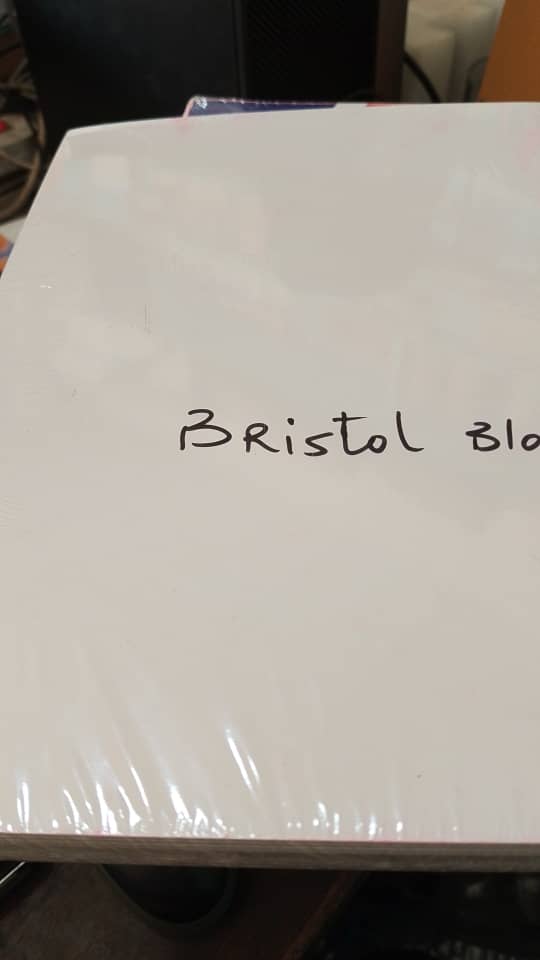 BRistol Blo